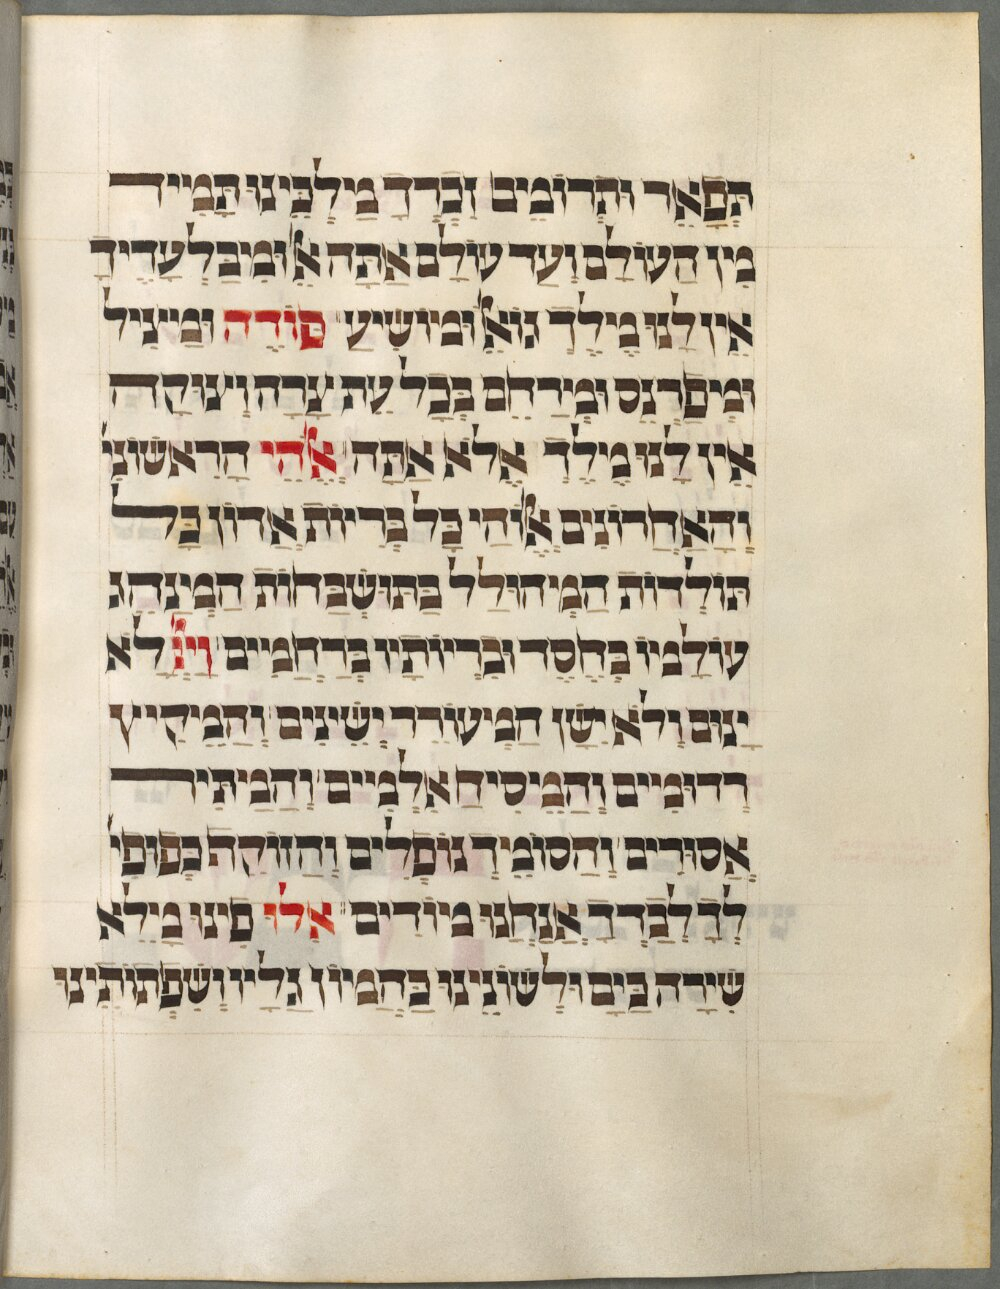 תְּפָאֵר וּתְרוֹמֵים זִכְרְךָ מַלְכֵּינוּ תָּמִייד
מִן הָעוֹלָם וְעַד עוֹלָם אַתָּה אֵל וּמִבַּלְעָדֶיךָ
אֵין לָנוּ מֶילֶךְ גּוֹאֵל וּמוֹשִׁיעַ פודה וּמַיצִיל
וּמְפַרְנֵס וּמְירַחֵם בְּכָל עֵת צָרָה וְצוּקָה
אֵין לָנוּ מֶילֶךְ אֶלָּא אַתָּה אלהי הָרִאשׁוֹנִי
וְהָאַחֲרוֹנִים אֱלוֹהֵי כָּל בְּרִיוֹת אֲדוֹן כָּל
תּוֹלָדוֹת הַמְיהוּלָל בְּתוּשְׁבָּחוֹת הַמְינַהֵג
עוֹלָמָיו בְּחֶסֶד וּבְרִיוֹתָיו בְּרַחֲמִים וייי לֹא
יָנוּם וְלֹא יִשָׁן הַמְיעוֹרֵר יְשֵׁינִים וְהַמֵּקִיץ
רְדוּמִים וְהַמֵּישִׂיחַ אִלְּמִים וְהַמַּיתִּיר
אֲסוּרִים וְהַסּוֹמֵיךְ נוֹפְלִים וְהַזּוֹקֵה כְּפוּפִי
לְךָ לְבַדְּךָ אֲנַחְנוּ מוֹדִים אלו פִינוּ מָלֵא
שִׁירָה כַּיָּם וּלְשׁוֹנֵינוּ כַּהֲמוֹן גַּלָּיו וְשִׂפְתוֹתֵינוּ